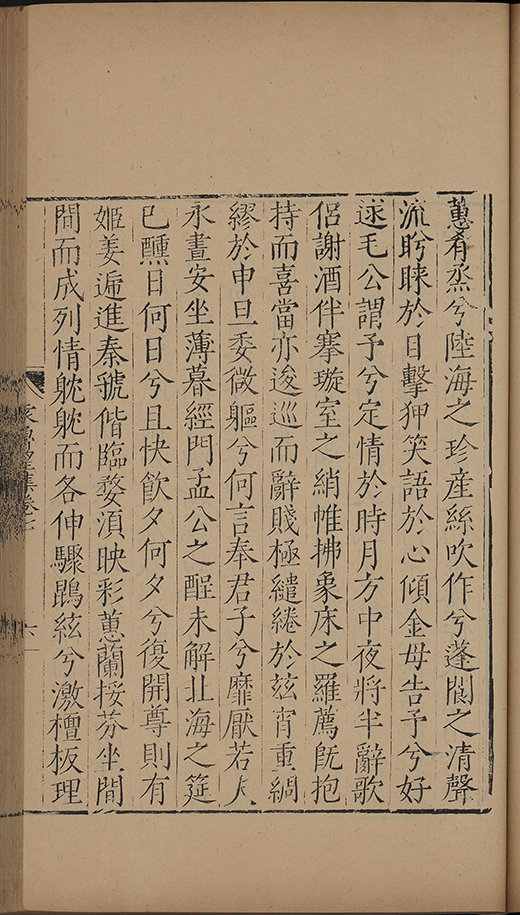 蕙肴烝兮陸海之珍產絲吹作兮蓬閬之清聲
流盻睞於目擊狎笑語於心傾金母告予兮好
逑毛公謂予兮定情於時月方中夜將半辭歌
侶謝酒伴搴璇室之綃帷拂象床之羅薦旣抱
持而喜當亦逡巡而辭賤極繾綣於兹宵重綢
繆於申旦委微軀兮何言奉君子兮靡厭若夫
永晝安坐薄暮經門孟公之酲未解北海之筵
已醺日何日兮且快飲夕何夕兮復開尊則有
姬姜遞進秦虢偕臨婺湏映彩蕙蘭挼芬坐間
間而成列情躭躭而各伸驟鵾絃兮激檀板理
集卷七
六